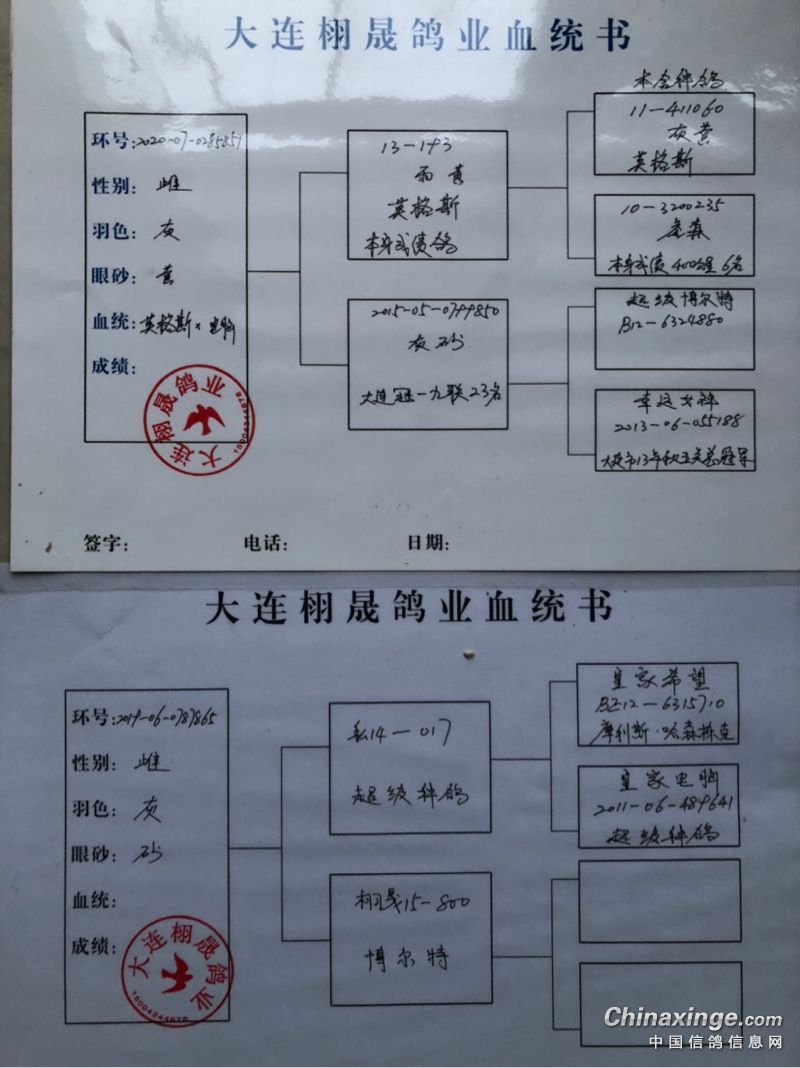 大连栩晟鸽业血统书
环号:2020-07-0285857
性别: 雌
羽色: 灰
眼砂: 黄
血统: 英格斯×
成绩:
大连栩晟鸽业
13-143
雨黄
英格斯
本身成绩鸽
2015-05-0744850
灰砂
大连冠一九联23名
本舍种鸽
11-411060
灰黄
英格斯
10-3200235
本身成绩400公里6名
超级博尔特
B12-6324880
幸运女神
2013-06-055188
大连市13年秋五关总冠军
签字:
电话:
日期:
大连栩晟鸽业血统书
环号:2019-06-0787865
性别: 雌
羽色: 灰
眼砂: 砂
血统:
成绩:
大连栩晟鸽业
私14-017
超级种鸽
栩晟15-800
博尔特
皇家希望
BE12-6315710
摩利斯·哈森栋克
皇家电脑
2011-06-489641
超级种鸽
Chinaxinge.com
中国信鸽信息网